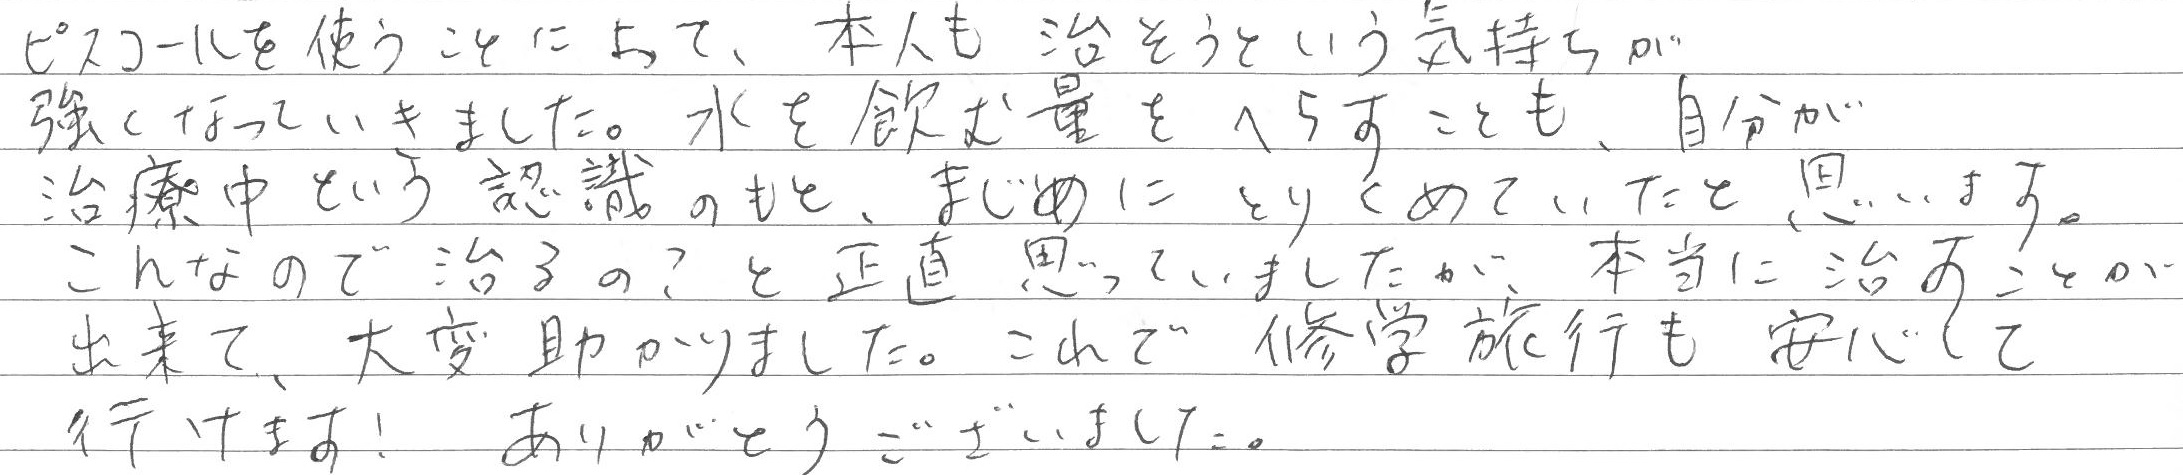 ピスコールを使うことによって、本人も治そうという気持ちが
強くなっていきました。水を飲む量をへらすことも、自分が
治療中という認識のもと、まじめにとりくめていたと思います。
こんなので治るの?と正直思っていましたが、本当に治すことが
出来て、大変助かりました。これで修学旅行も安心して
行けます!ありがとうございました。